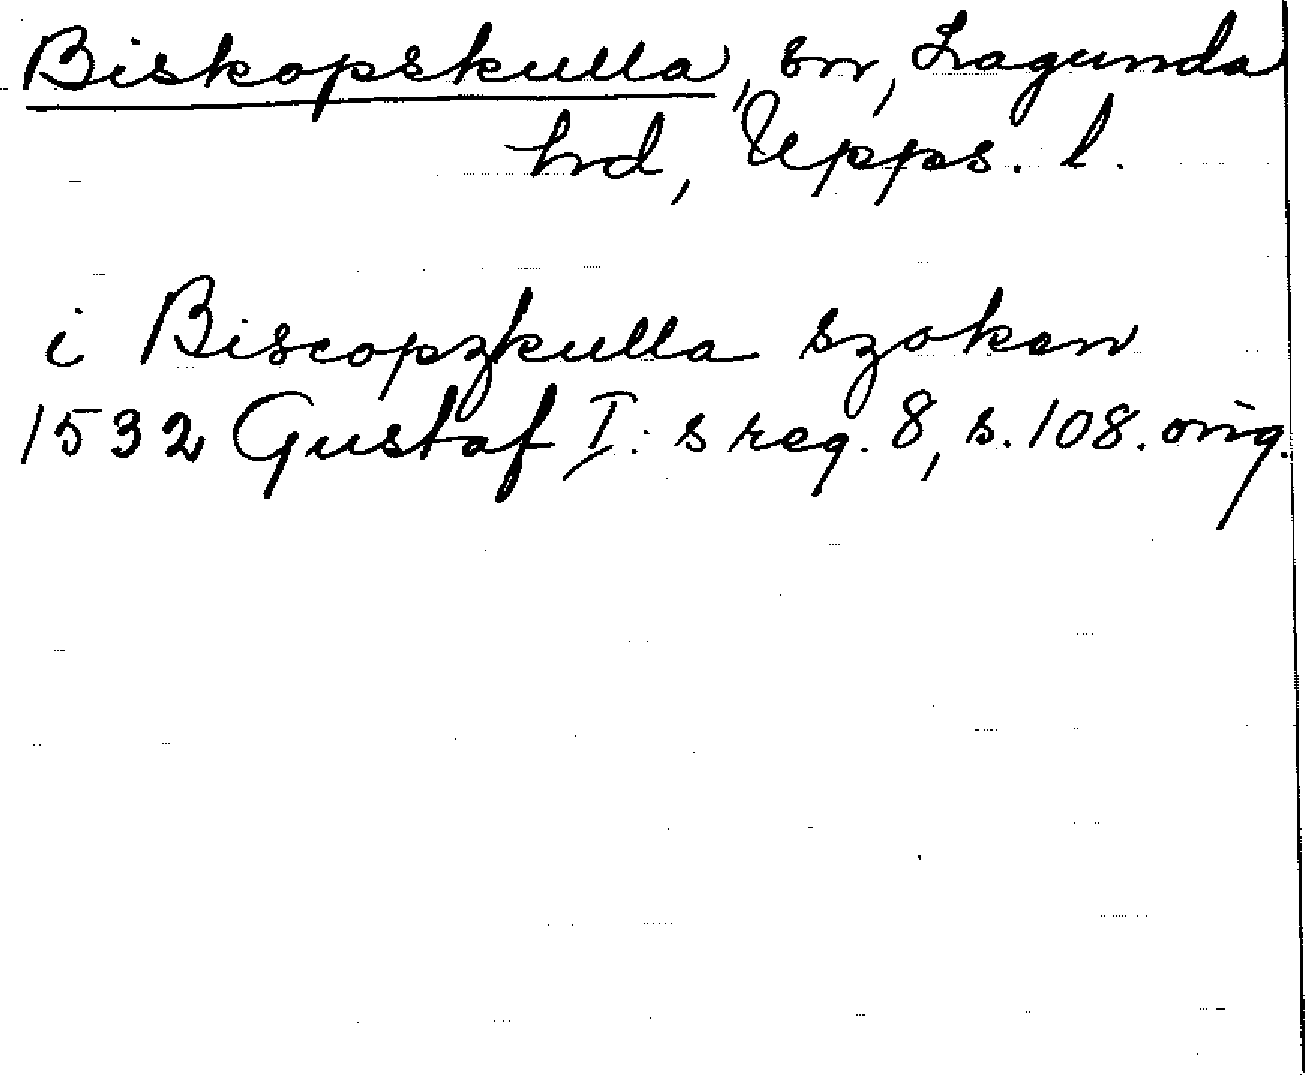 Biskopskulla, sn, Lagunda
hd, Upps. l.
i Biscopzkulla szoken
1532 Gustaf I:s reg. 8, s. 108. orig.